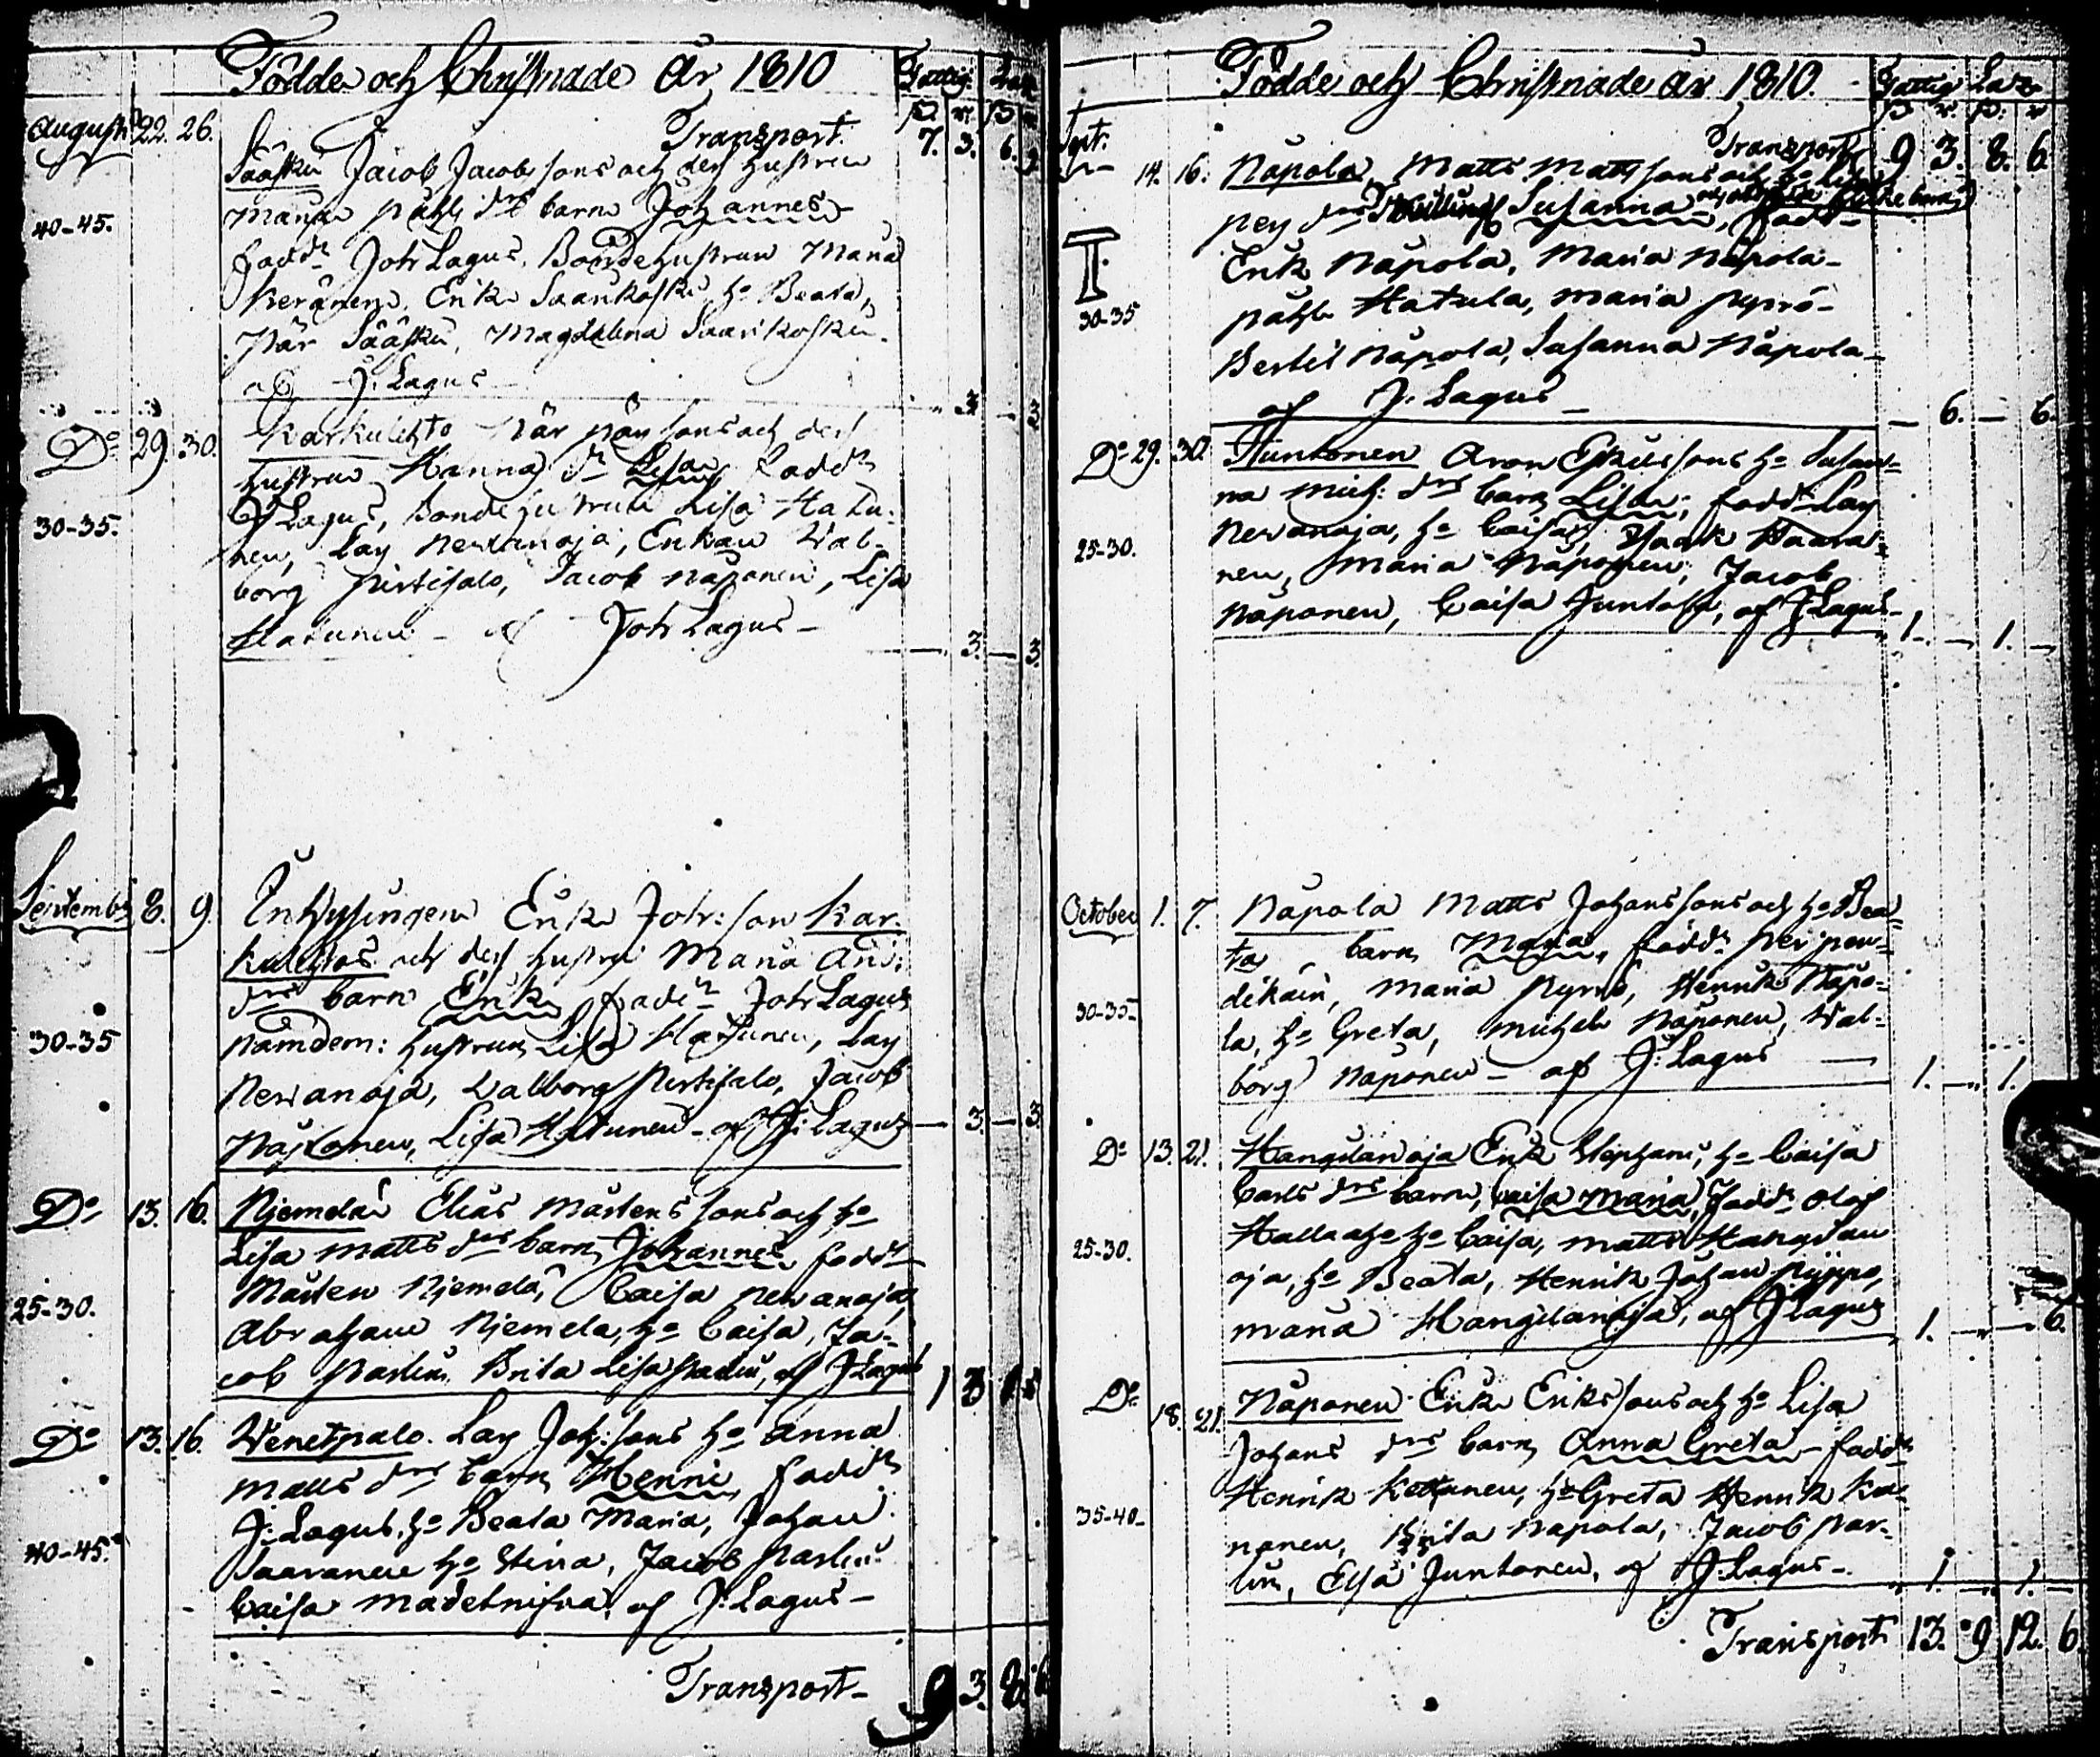 Födde och Christnade År 1810 Fattig. Laz
Transport. 7. 3. 6. 9
Augusti 22. 26. Sääski Jacob Jacobssons och dess hustru
Maria påhls drs barn Johannes
40-45. fadd. Joh Lagus, Bondehustrun Maria
Keränen, Erik Saarikoski h. Beata,
Pär Sääski, Magdalena Saarikoski.
af J. Lagus - 3. - 3
Do 29. 30. Karkulehto Pär pärssons och dess
hustru Hanna dr Lisa, fadd.
J Lagus, Bondehustrun Lisa Hatu-
30-35. nen, Lars Nevanoja, Enkan Wal-
borg pirtisalo, Jacob Näponen, Lisa
Hatunen - af Joh Lagus - 3. - 3.
September 8. 9. Inhysingen Erik Joh:son Kar-
kulehtos och dess hustru Maria And:
drs barn Erik, fadd. Joh Lagus
30-35 Nämdem: hustrun Lisa Hatunen, Lars
Nevanoja, Walborg Pirtisalo, Jacob
Näponen, Lisa Hatunen - af J: Lagus - 3. - 3.
Do 13. 16. Njemelä Elias Mårtenssons och h.
Lisa Matts drs barn Johannes fadd.
Mårten Njemelä, Caisa Nevanoja,
25-30. Abraham Njemelä, h. Caisa, Ja-
cob parlin, Brita Lisa parlin, af J Lagus
Do 13. 16. Wenetpalo. Lars Joh:sons h. Anna
Matts drs barn Henric, fadd.
J. Lagus, h. Beata Maria, Johan
40-45. Saaranen h. Stina, Jacob Parlin
Caisa Madetnisva, af J. Lagus -
Transport - 9 3. 8. 6
Födde och Christnade År 1810. Fattig Laz
Transport 9 3. 8. 6
Sept: 14. 16. Näpola Matts Mattssons och h. Lisa
pers drs Tvilling Susanna, fadd.
T. Erik Näpola, Maria Näpola -
30-35 påhl Hatula, Maria pyrrö -
Bertil Näpola, Susanna Näpola -
af J. Lagus - - 6. - 6.
Do 29. 30. Huntonen Aron Eskilssons h. Susan-
na Mich: drs barn Lisa, fadd. Lars
25-30. Nevanoja, h. Caisa, Isaak Haara-
nen, Maria Näponen, Jacob
Näponen, Caisa Juntoja, af J Lagus - 1. - 1. -
October 1. 7. Näpola Matts Johanssons och h. Bea-
ta, barn Maria, fadd. per pen-
dikäin, Maria Pyrrö, Henrik Näpo-
30-35 la, h. Greta, Michel Näponen, Wal-
borg Näponen - af J. Lagus - 1. - 1.
Do 13. 21. Hangilanoja Erik Stephans, h. Caisa
Carls drs barn, Caisa Maria, fadd. Olof
Hallaaho h. Caisa, Matts Hangilan
25-30. oja, h. Beata, Henrik Johan pyppo,
Maria Hangilanoja, af J Lagus 1. - - 6.
Do 18. 21. Näponen Erik Erikssons och h. Lisa
Johans drs barn Anna Greta - fadd.
Henrik Kettunen, h. Greta Henrik Kä-
35-40 - nonen, Brita Näpola, Jacob par-
lin, Elsa Juntonen, af J. Lagus - 1. - 1. -
Transport 13. 9 12. 6